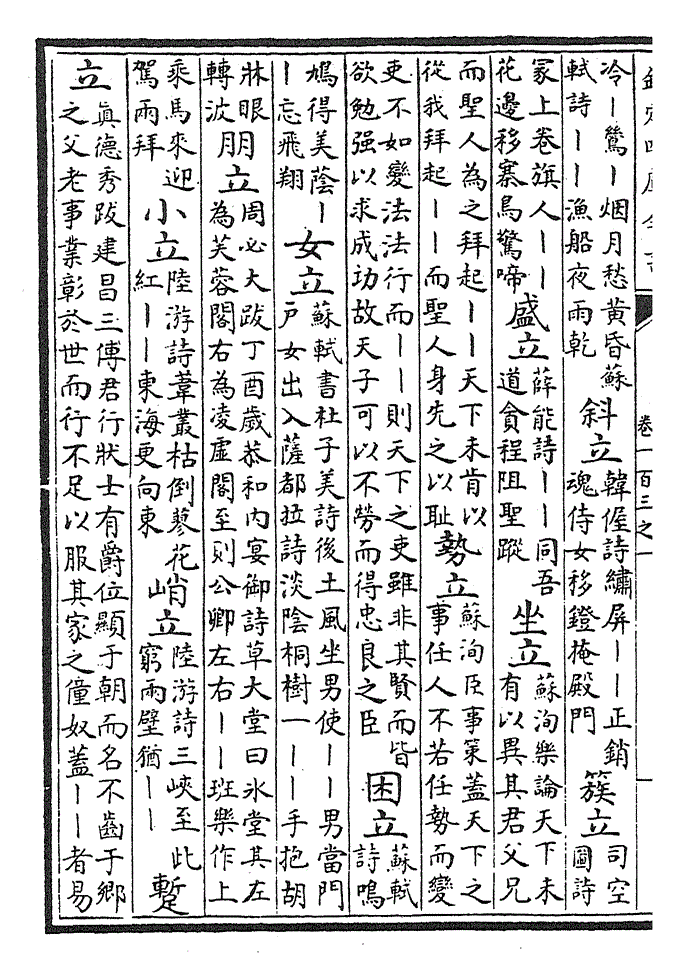 欽定四庫全書
卷一百三之一
冷丨鷺丨烟月愁黄昏蘇
軾詩丨丨漁船夜雨乾
斜立
韓偓詩繡屏丨丨正銷
魂侍女移鐙掩殿門
簇立
司空
圖詩
冡上卷旗人丨丨
花邊移寨鳥驚啼
盛立
薛能詩丨丨同吾
道貪程阻聖蹤
坐立
蘇洵樂論天下未
有以異其君父兄
而聖人為之拜起丨丨天下未肯以
從我拜起丨丨而聖人身先之以耻
勢立
蘇洵臣事策蓋天下之
事任人不若任勢而變
吏不如變法法行而丨丨則天下之吏雖非其賢而皆
欲勉强以求成功故天子可以不勞而得忠良之臣
困立
蘇軾
詩鳴
鳩得美蔭丨
丨忘飛翔
女立
蘇軾書杜子美詩後土風坐男使丨丨男當門
户女出入薩都拉詩淡陰桐樹一丨丨手抱胡
牀眼
轉波
朋立
周必大跋丁酉歲恭和内宴御詩草大堂曰氷堂其左
為芙蓉閣右為凌虚閣至則公卿左右丨丨班樂作上
乘馬來迎
駕雨拜
小立
陸游詩葦叢枯倒蓼花
紅丨丨東海更向東
峭立
陸游詩三峽至此
窮雨壁猶丨丨
蹔
立
眞德秀跋建昌三傅君行狀士有爵位顯于朝而名不齒于鄉
之父老事業彰於世而行不足以服其家之僮奴蓋丨丨者易